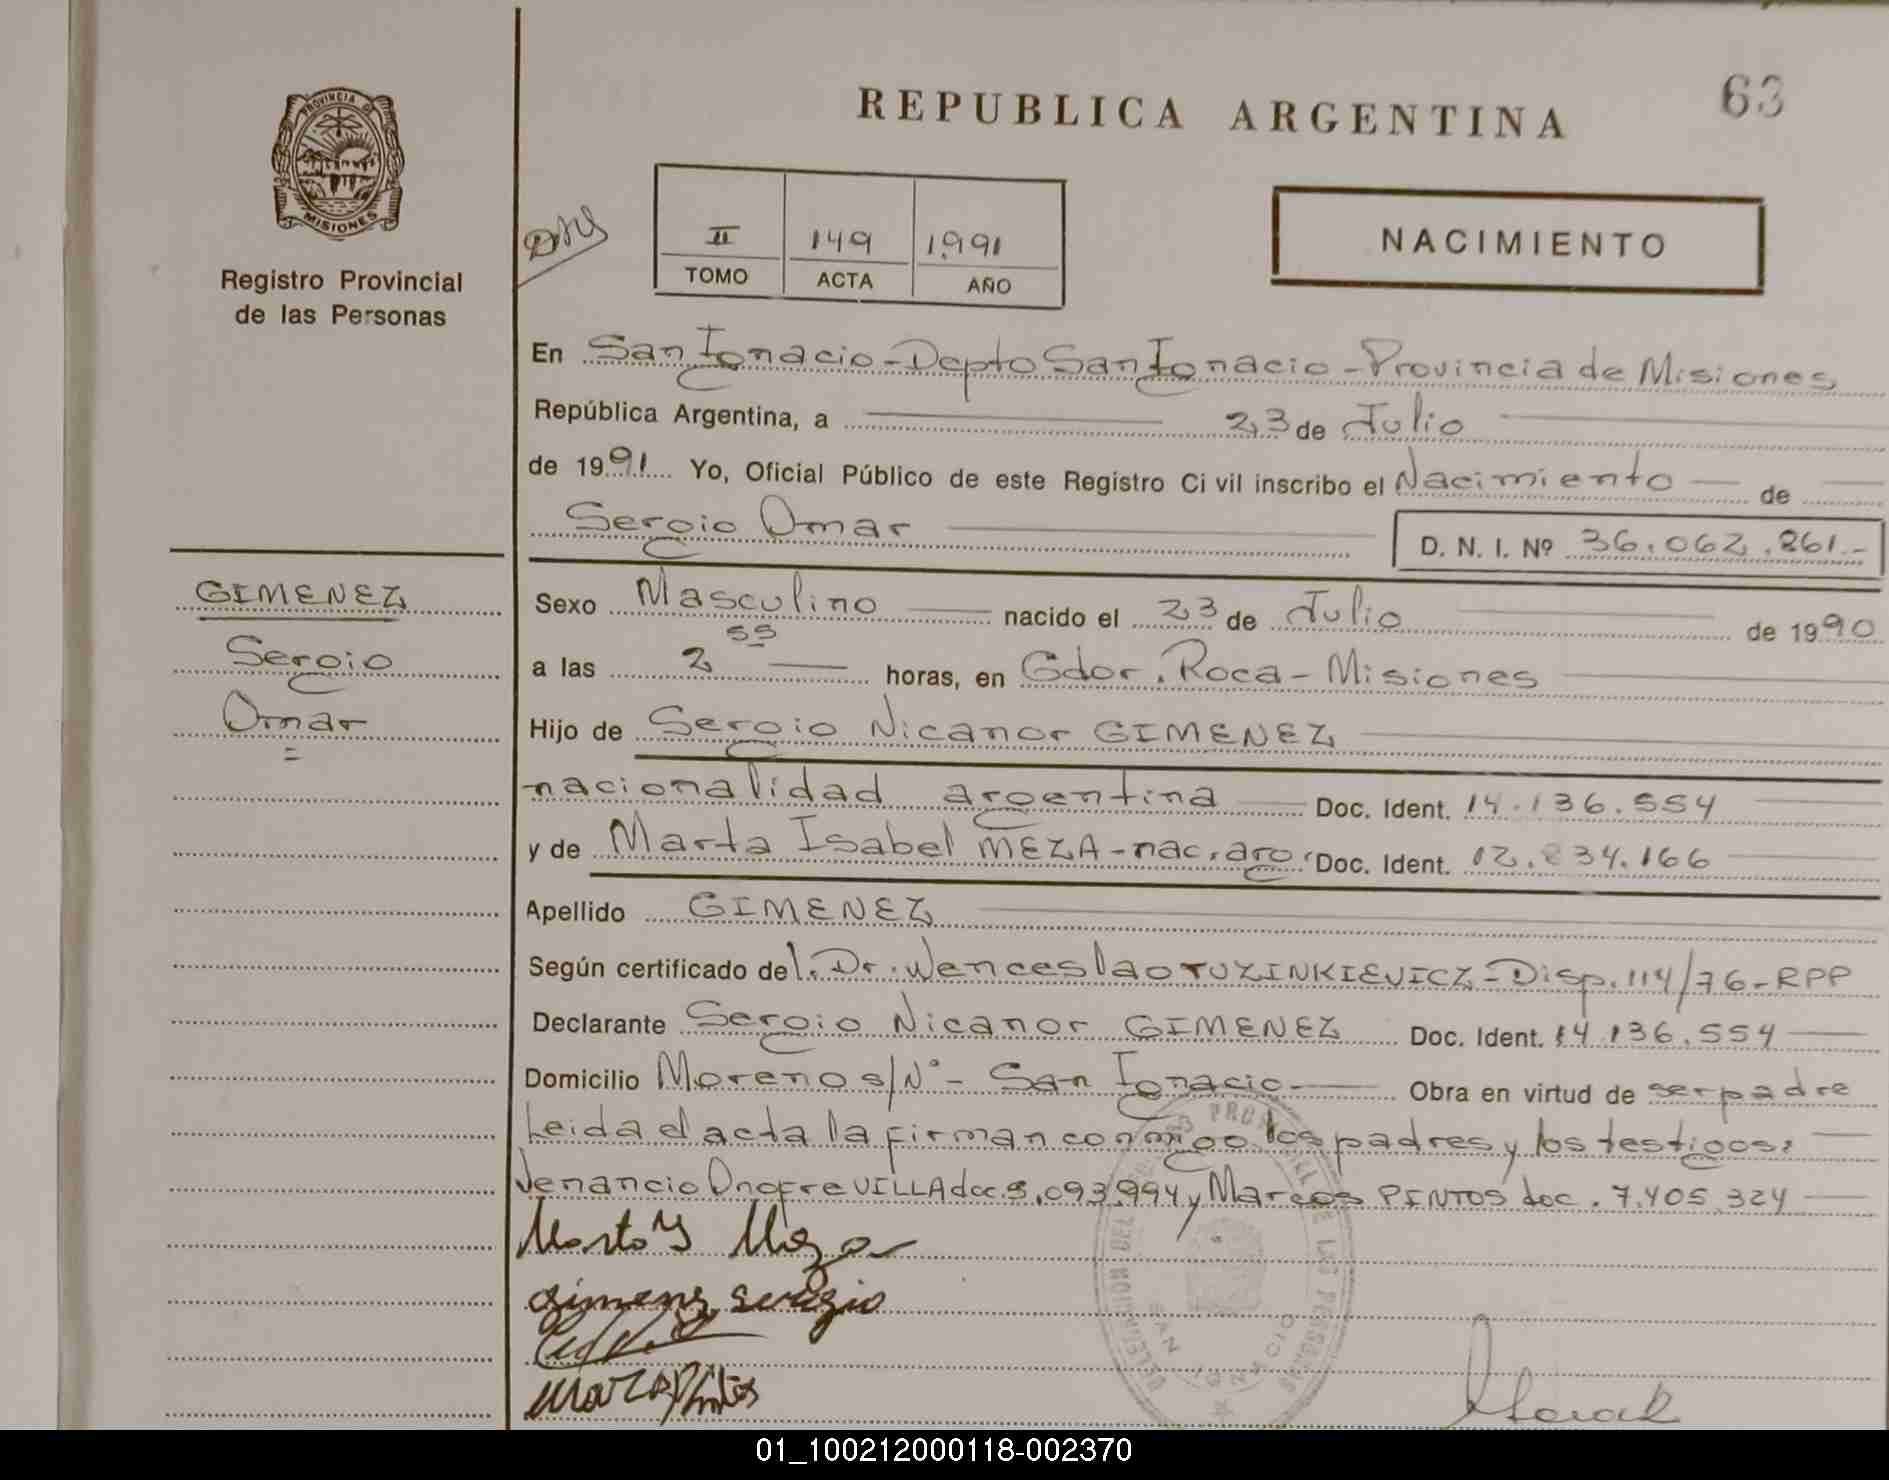 63
REPUBLICA ARGENTINA
PROVINCIA D
MISIONES
Registro Provincial
de las Personas
II 149 1991
TOMO ACTA AÑO
NACIMIENTO
En San Ignacio - Depto San Ignacio - Provincia de Misiones
República Argentina, a 23 de Julio
de 1991 Yo, Oficial Público de este Registro Civil inscribo el Nacimiento de
Sergio Omar D. N. I. Nº 36.062.861.-
GIMENEZ
Sergio
Omar
Sexo Masculino nacido el 23 de Julio de 1990
a las 2 55 horas, en Gdor. Roca - Misiones
Hijo de Sergio Nicanor GIMENEZ
nacionalidad argentina Doc. Ident. 14.136.554
y de Marta Isabel MEZA - nac. arg. Doc. Ident. 12.834.166
Apellido GIMENEZ
Según certificado del Dr. Wenceslao TUZINKIEVICZ - Disp. 114/76 - RPP
Declarante Sergio Nicanor GIMENEZ Doc. Ident. 14.136.554
Domicilio Moreno s/Nº - San Ignacio Obra en virtud de ser padre
Leida el acta la firman conmigo los padres y los testigos:
Venancio Onofre VILLA doc. 5.093.994 y Marcos PINTOS doc. 7.405.324
Marta Y Meza
Gimenez Sergio
DELEGACION DEL REGISTRO PROVINCIAL DE LAS PERSONAS
SAN IGNACIO
01_100212000118-002370